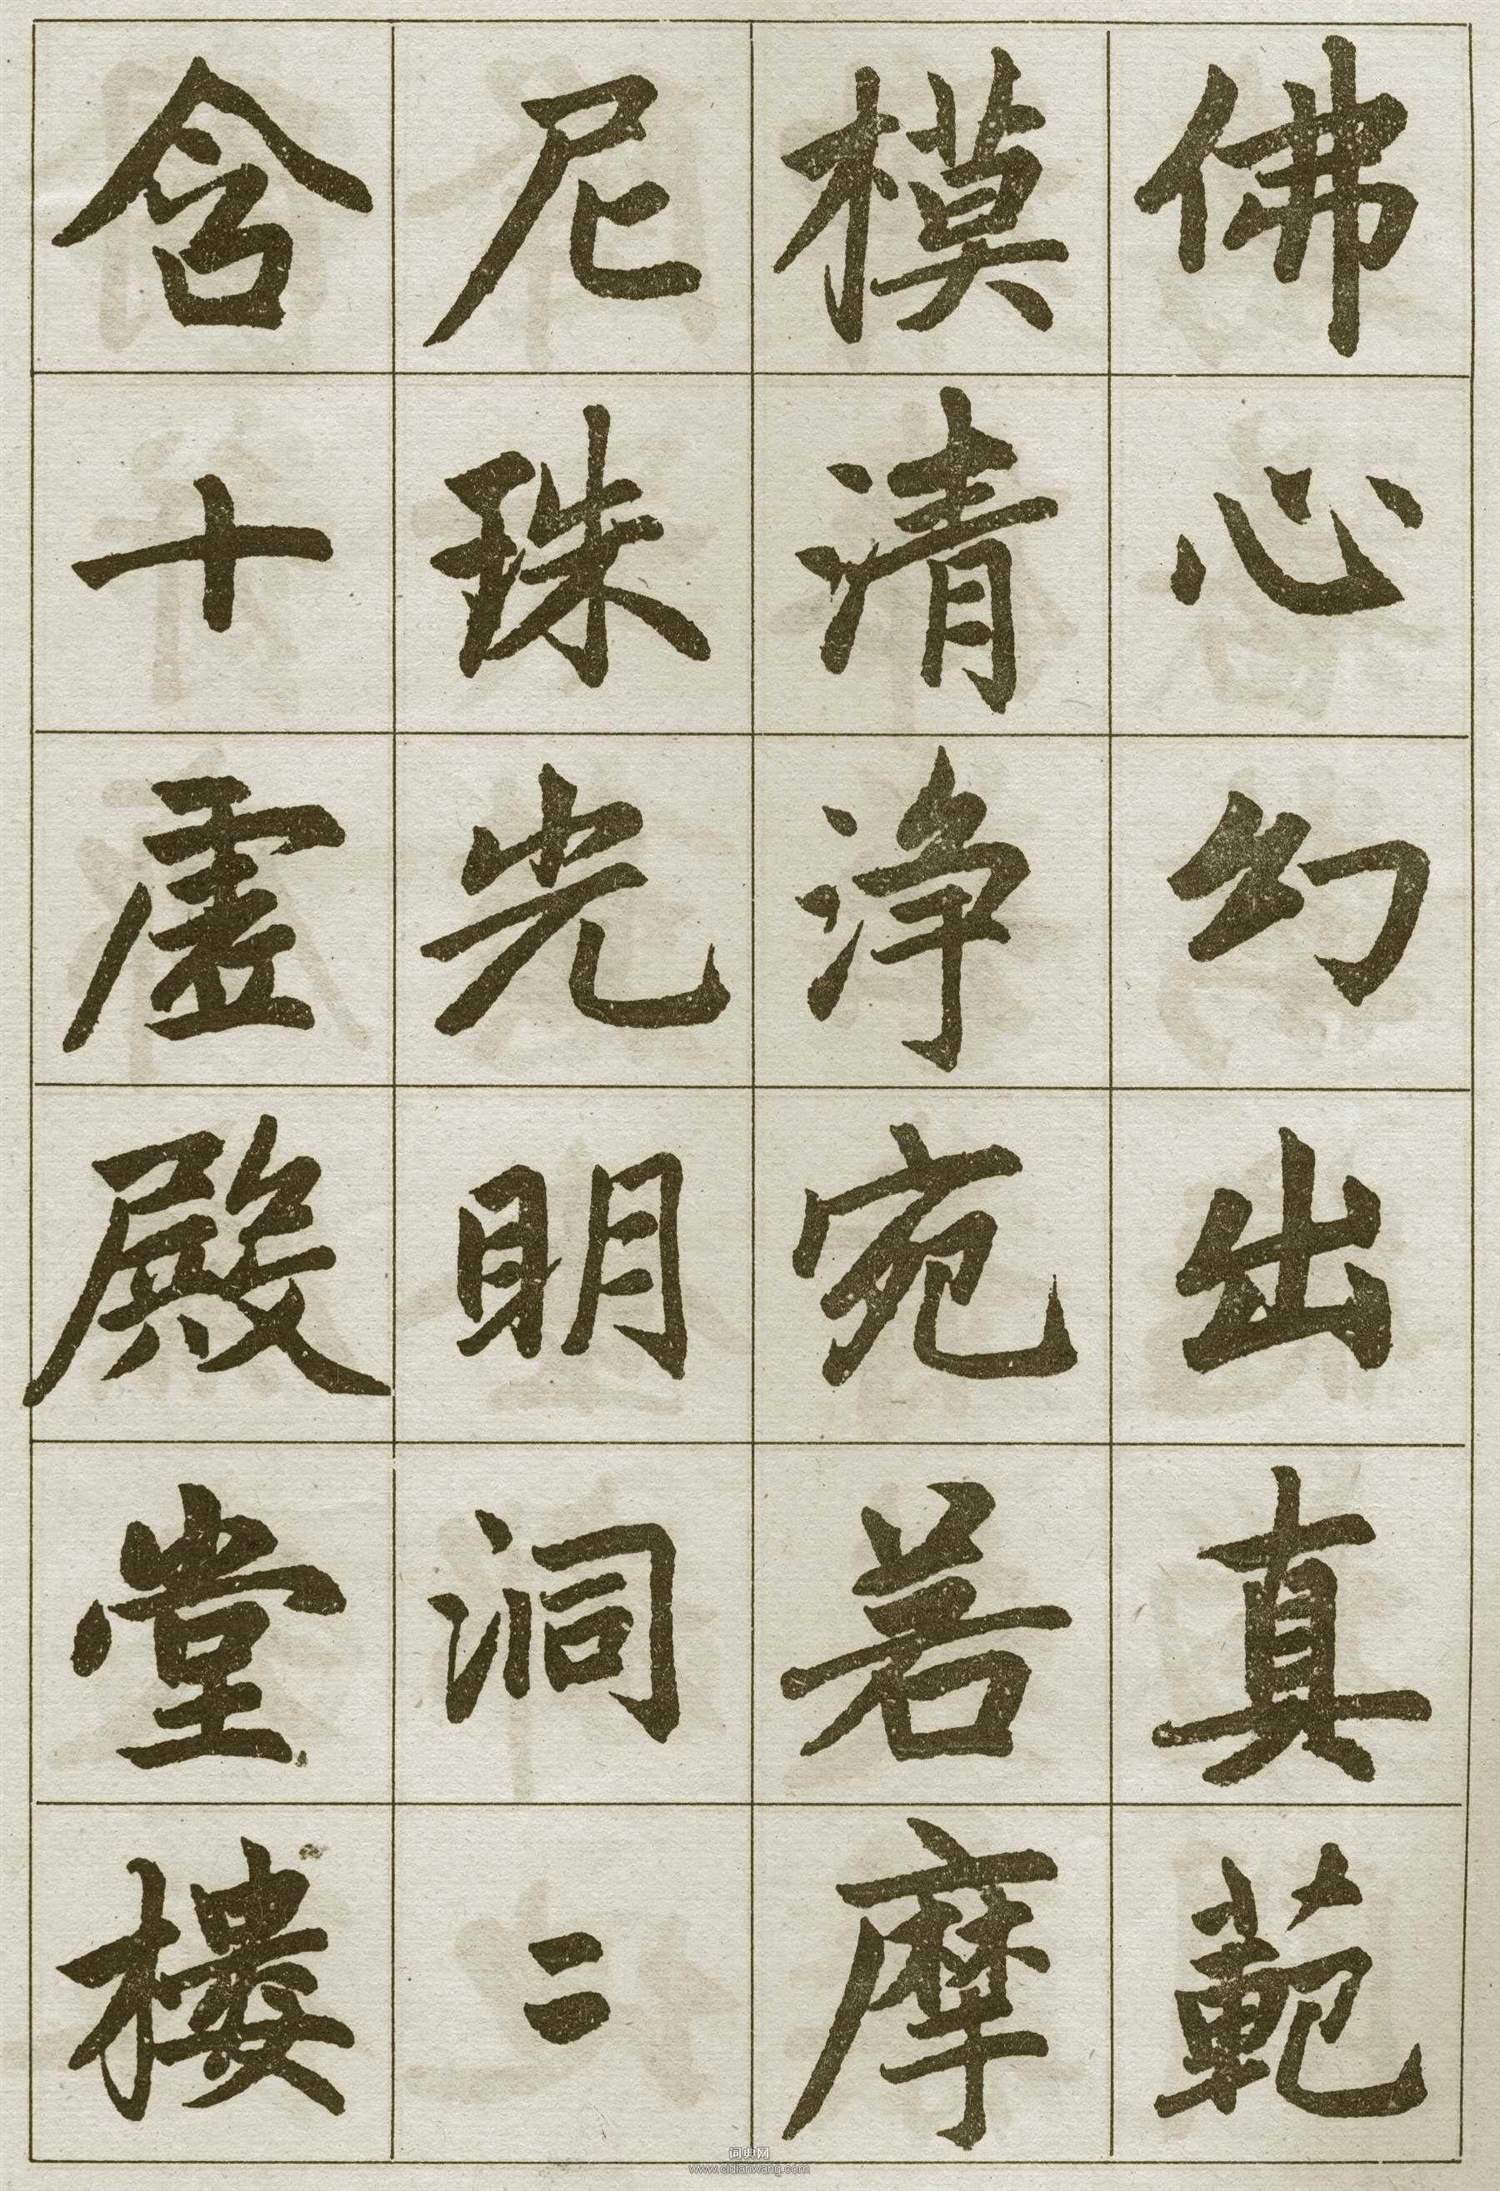 佛心幻出真範
模清净宛若摩
尼珠光明洞〻
含十虛殿堂樓
词典网
www.cidianwang.com